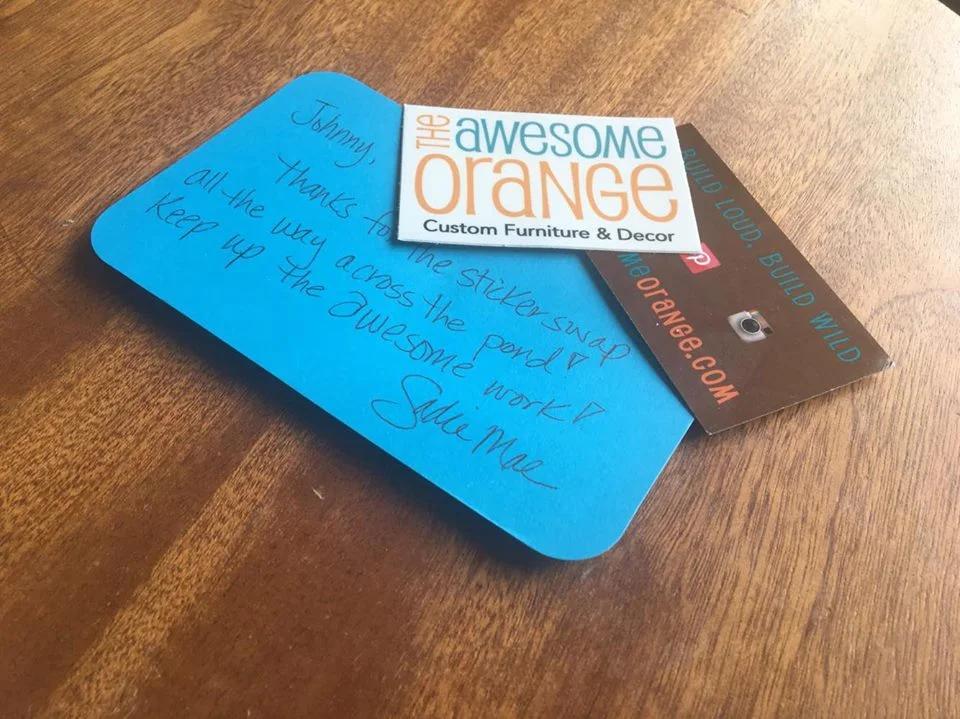 Johnny,
Thanks for the sticker swap
all the way across the pond!
Keep up the awesome work!
Sadie Mae
THE AWESOME
ORANGE
Custom Furniture & Decor
BUILD LOUD, BUILD WILD
meorange.com